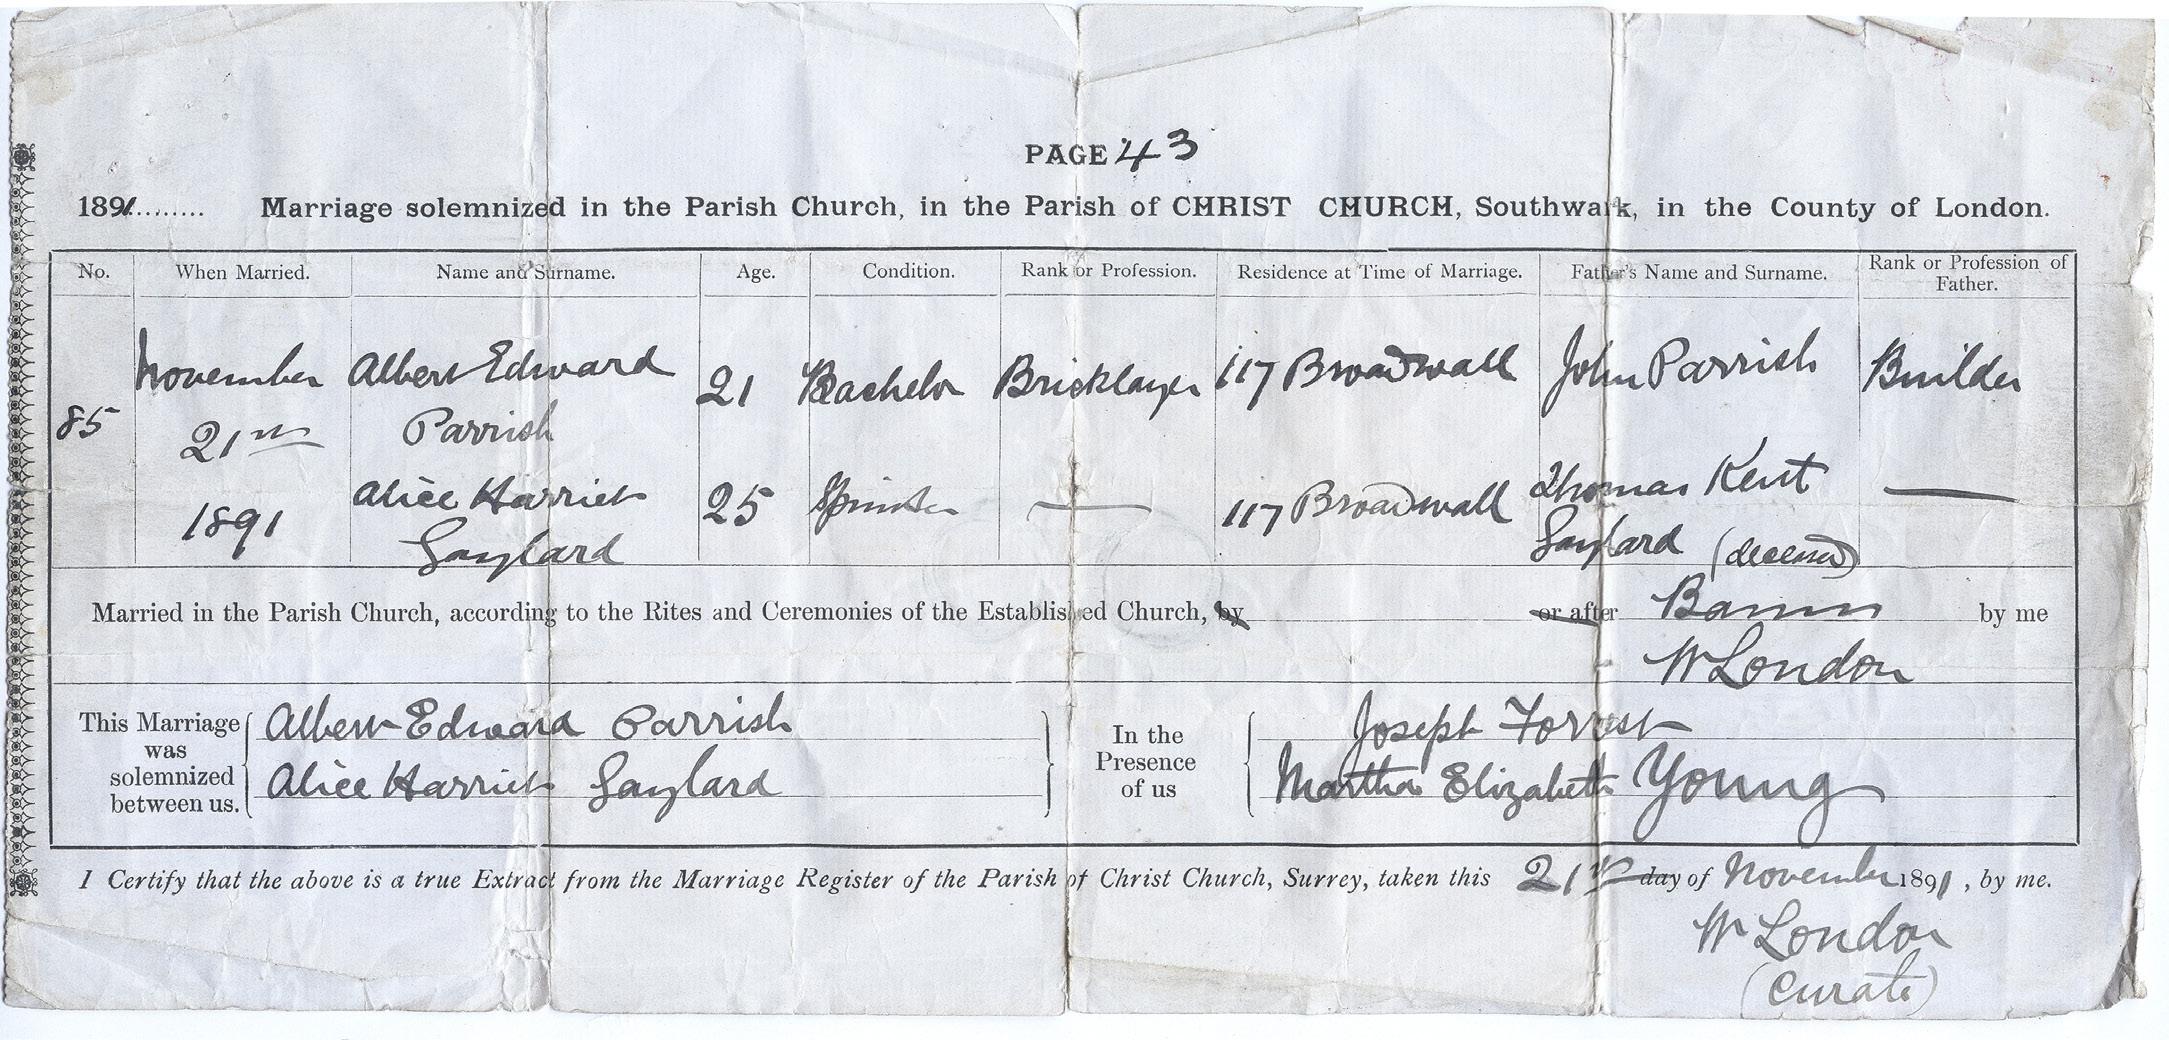 PAGE 43
1891........ Marriage solemnized in the Parish Church, in the Parish of CHRIST CHURCH, Southwark, in the County of London.
No. When Married. Name and Surname. Age. Condition. Rank or Profession. Residence at Time of Marriage. Father's Name and Surname. Rank or Profession of Father.
85
November 21st 1891
Albert Edward Parrish 21 Bachelor Bricklayer 117 Broadwall John Parrish Builder
Alice Harriet Gaylard 25 Spinster — 117 Broadwall Thomas Kent Gaylard (deceased) —
Married in the Parish Church, according to the Rites and Ceremonies of the Established Church, by or after Banns by me
W London
This Marriage was solemnized between us.
Albert Edward Parrish
Alice Harriet Gaylard
In the Presence of us
Joseph Forrest
Martha Elizabeth Young
I Certify that the above is a true Extract from the Marriage Register of the Parish of Christ Church, Surrey, taken this 21st day of November 1891, by me.
W London
(Curate)